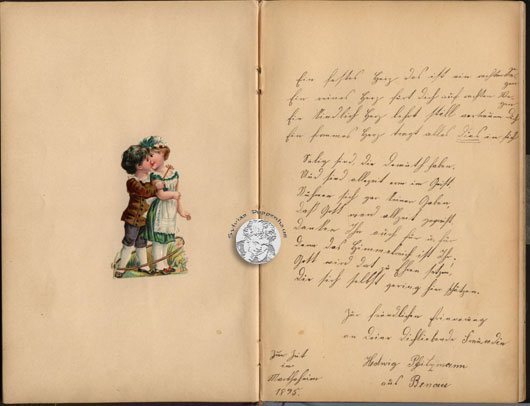 Ein festes Herz das ist ein rechter Se-
gen
Ein reines Herz führt doch auf rechten We-
gen
Ein friedlich Herz lebt still
Ein frommes Herz trägt alles dies in sich
Selig sind, die Demuth haben,
Und sind allezeit arm im Geist,
Rühmen sich gar keiner Gaben,
daß Gott werd allzeit gepreist,
danken Ihm auch für u. für
denn das Himmelreich ist ihr.
Gott wird dort zu Ehren setzen,
die sich selbst gering hier schätzen.
Zur freundlichen Erinnerung
an deine dichliebende Freundin
Hedwig
aus Benau
Zur Zeit
in
1895.
Sylvias Puppenhaus